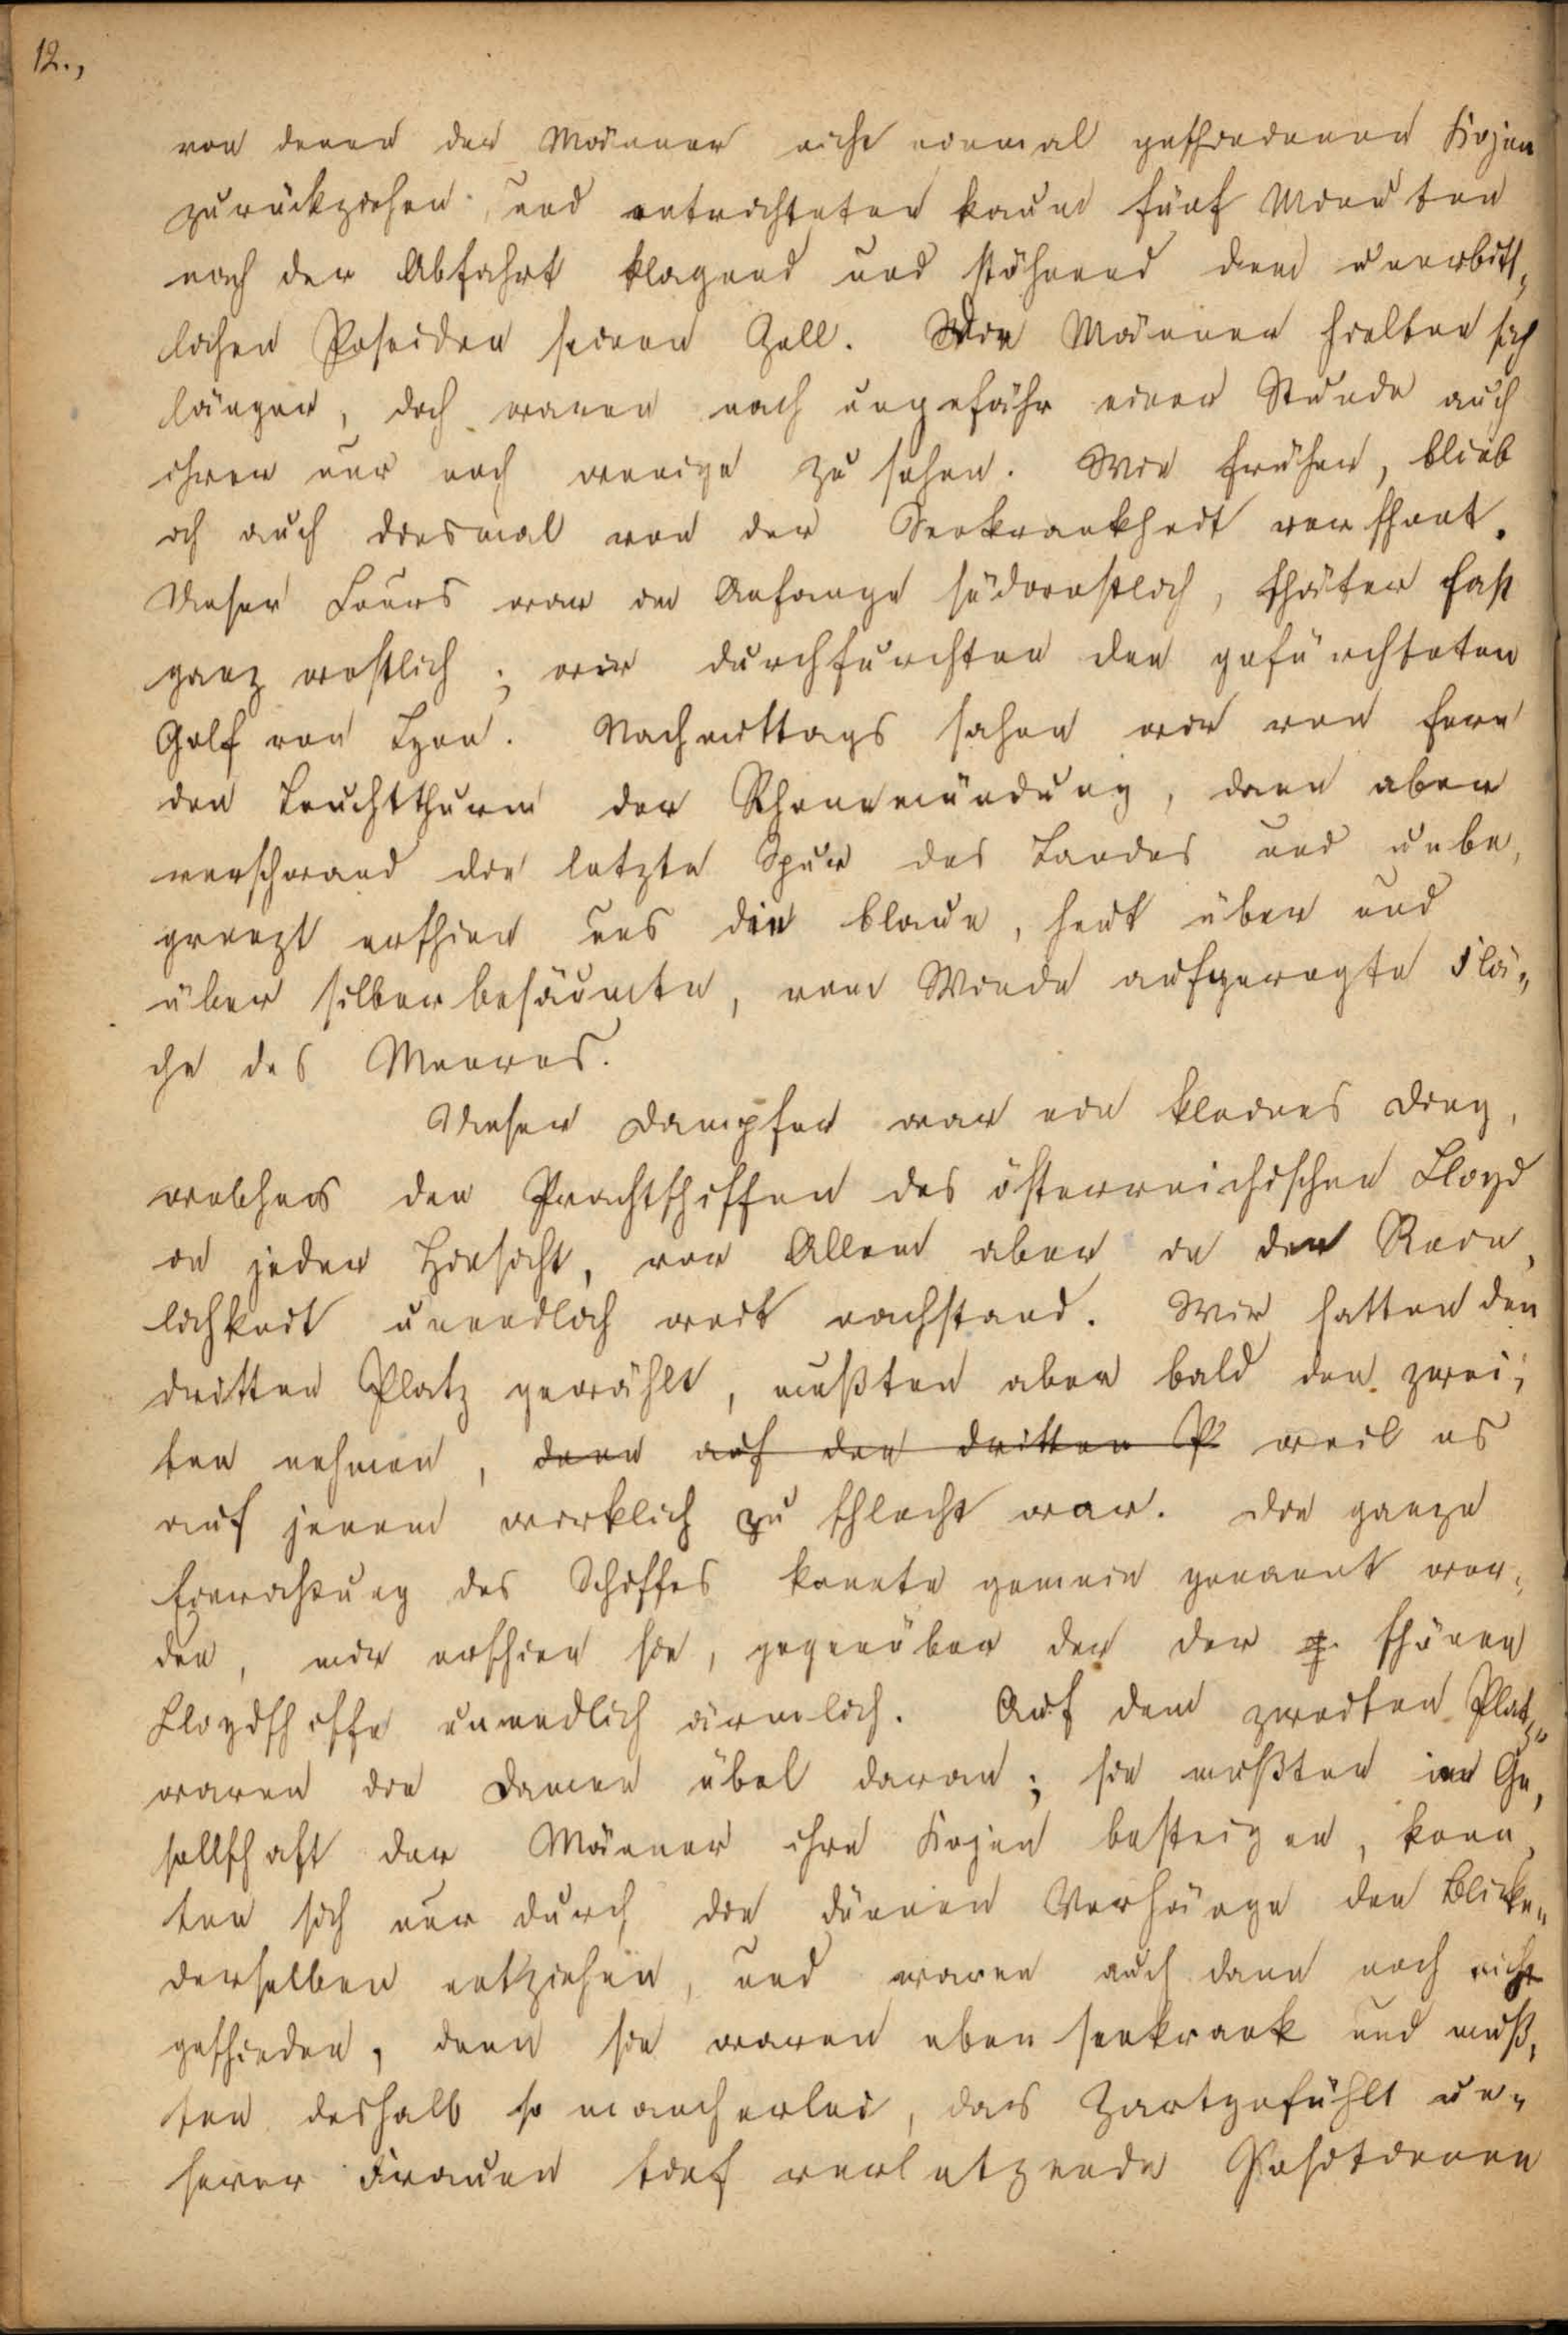 12.,
von denen der Männer nicht einmal geschiedenen Kojen
zurückziehen und entrichteten kaum fünf Minuten
nach der Abfahrt klagend und stöhnend dem unerbitt„
lichen Poseidon seinen Zoll. Wir Männer hielten sich
länger, doch waren nach ungefähr einer Stunde auch
ihrer nur noch wenige zu sehen. Wie früher, blieb
ich auch diesmal von der Seekrankheit verschont.
Unser Cours war im Anfange südwestlich, später fast
ganz westlich; wir durchfurchten den gefürchteten
Golf von Lyon. Nachmittags sahen wir von fern
den Leuchtthurm der Rhonemündung, dann aber
verschwand die letzte Spur des Landes und unbe„
grenzt erschien uns die blaue, heut über und
über silberbesäumte, vom Winde aufgeregte Flä„
che des Meeres.
Unser Dampfer war ein kleines Ding,
welches den Prachtschiffen des österreichischen Lloyd
in jeder Hinsicht, vor Allem aber in der Rein„
lichkeit unendlich weit nachstand. Wir hatten den
dritten Platz gewählt, mußten aber bald den zwei„
ten nehmen, denn auf den dritten P weil es
auf jenem wirklich zu schlecht war. Die ganze
Einrichtung des Schiffes konnte gemein genannt wer„
den, mir erschien sie, gegenüber der der g. schönen
Lloydschiffe unendlich ärmlich. Auf dem zweiten Platz„
waren die Damen übel daran; sie mußten in Ge„
sellschaft der Männer ihre Kojen besteigen, konn„
ten sich nur durch die dünnen Vorhänge den Blicken„
derselben entziehen, und waren auch dann noch nicht
geschieden, denn sie waren eben seekrank und muß„
ten deshalb so mancherlei, das Zartgefühlt un„
serer Frauen tief verletzende Positionen